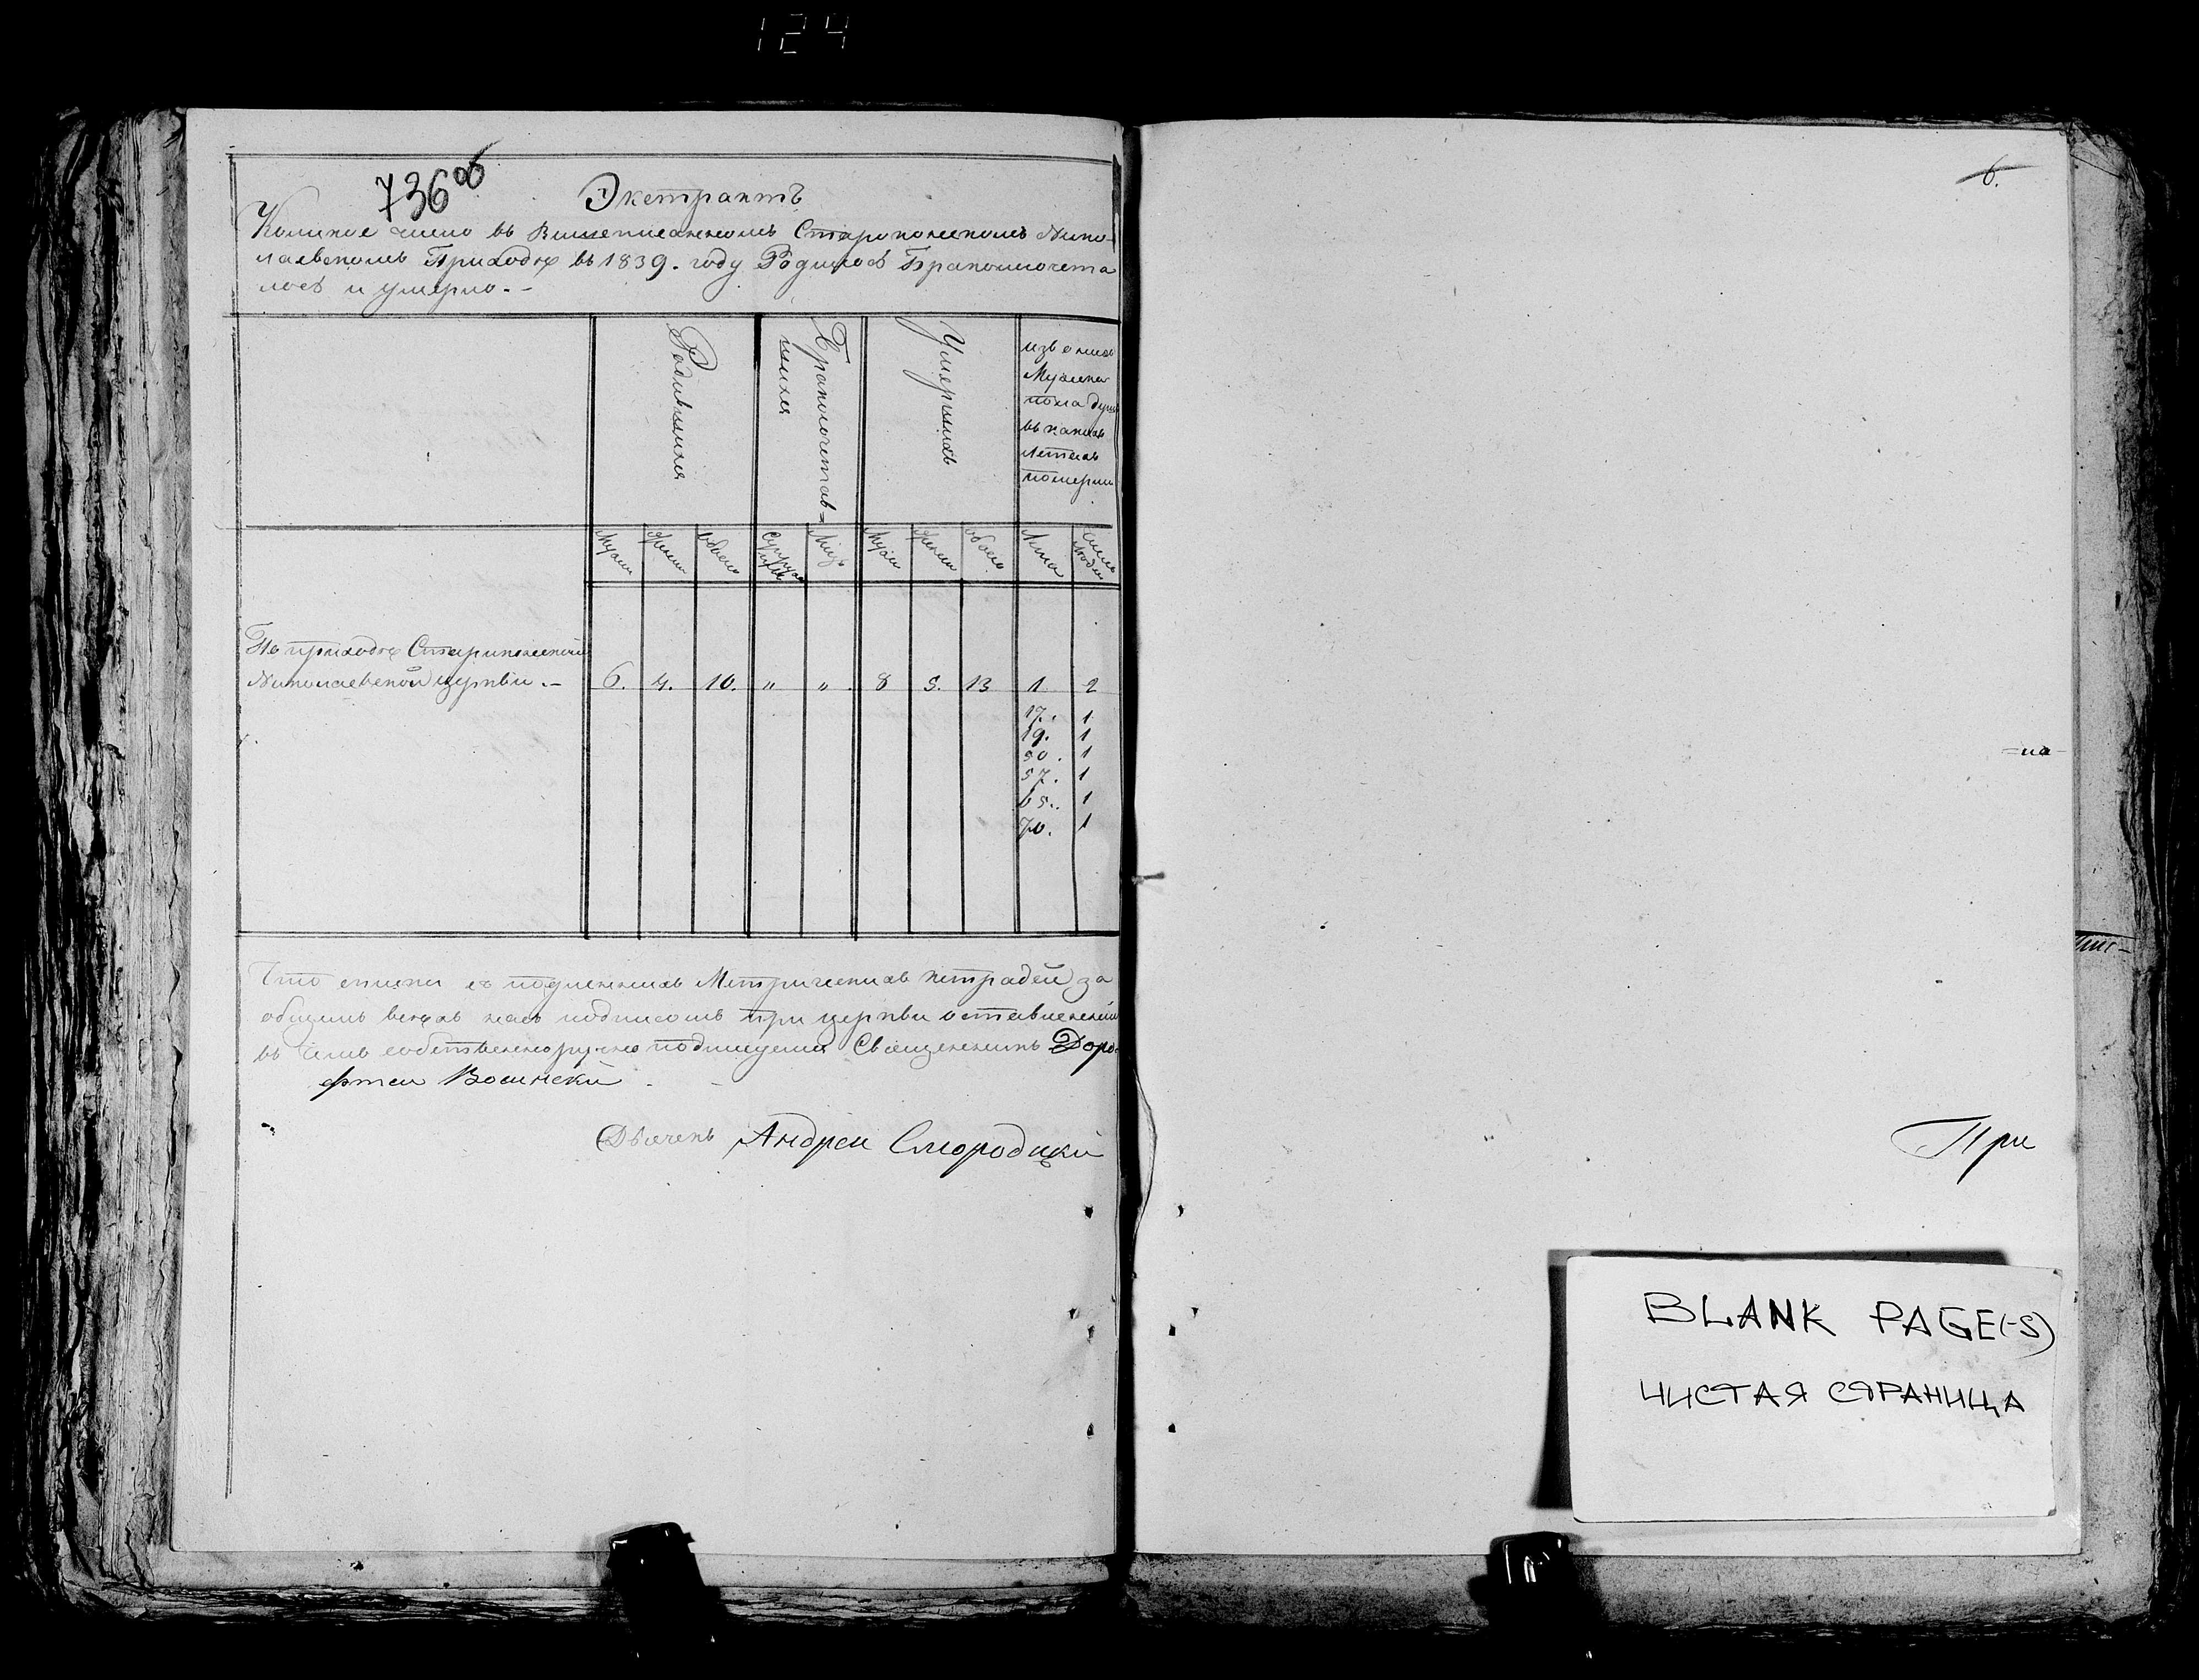 124
736об
Экстрактъ
Коликое число въ Вышеписанномъ Старопольскомъ Нико-
лаевскомъ Приходѣ въ 1839. году Родилось Бракосочета
лось и умерло. -
Родившихся
Бракосочетав=
шихся
Умершихъ
изъ оныхъ
Мужеска
пола душъ
въ какихъ
летахъ
померли
Мужеск
Женск
обоего
Супруж
Лицъ
Мужск
Женск
обоего
Лета
Число
людей
По приходѣ
Николаевской церкви. -
6. 4. 10. " " 8 5. 13 1. 2
17. 1
19. 1
50. 1
57. 1
65. 1
70. 1
Что списки съ подлинныхъ Метрическихъ тетрадей за
общимъ всѣхъ насъ подписомъ при церкви оставленной
въ чемъ собственноручно подписуемся Священникъ Доро
фтеи
Дьячекъ Андреи Смородцки
6.
=на-
При
BLANK PAGE(-S)
ЧИСТАЯ СТРАНИЦА